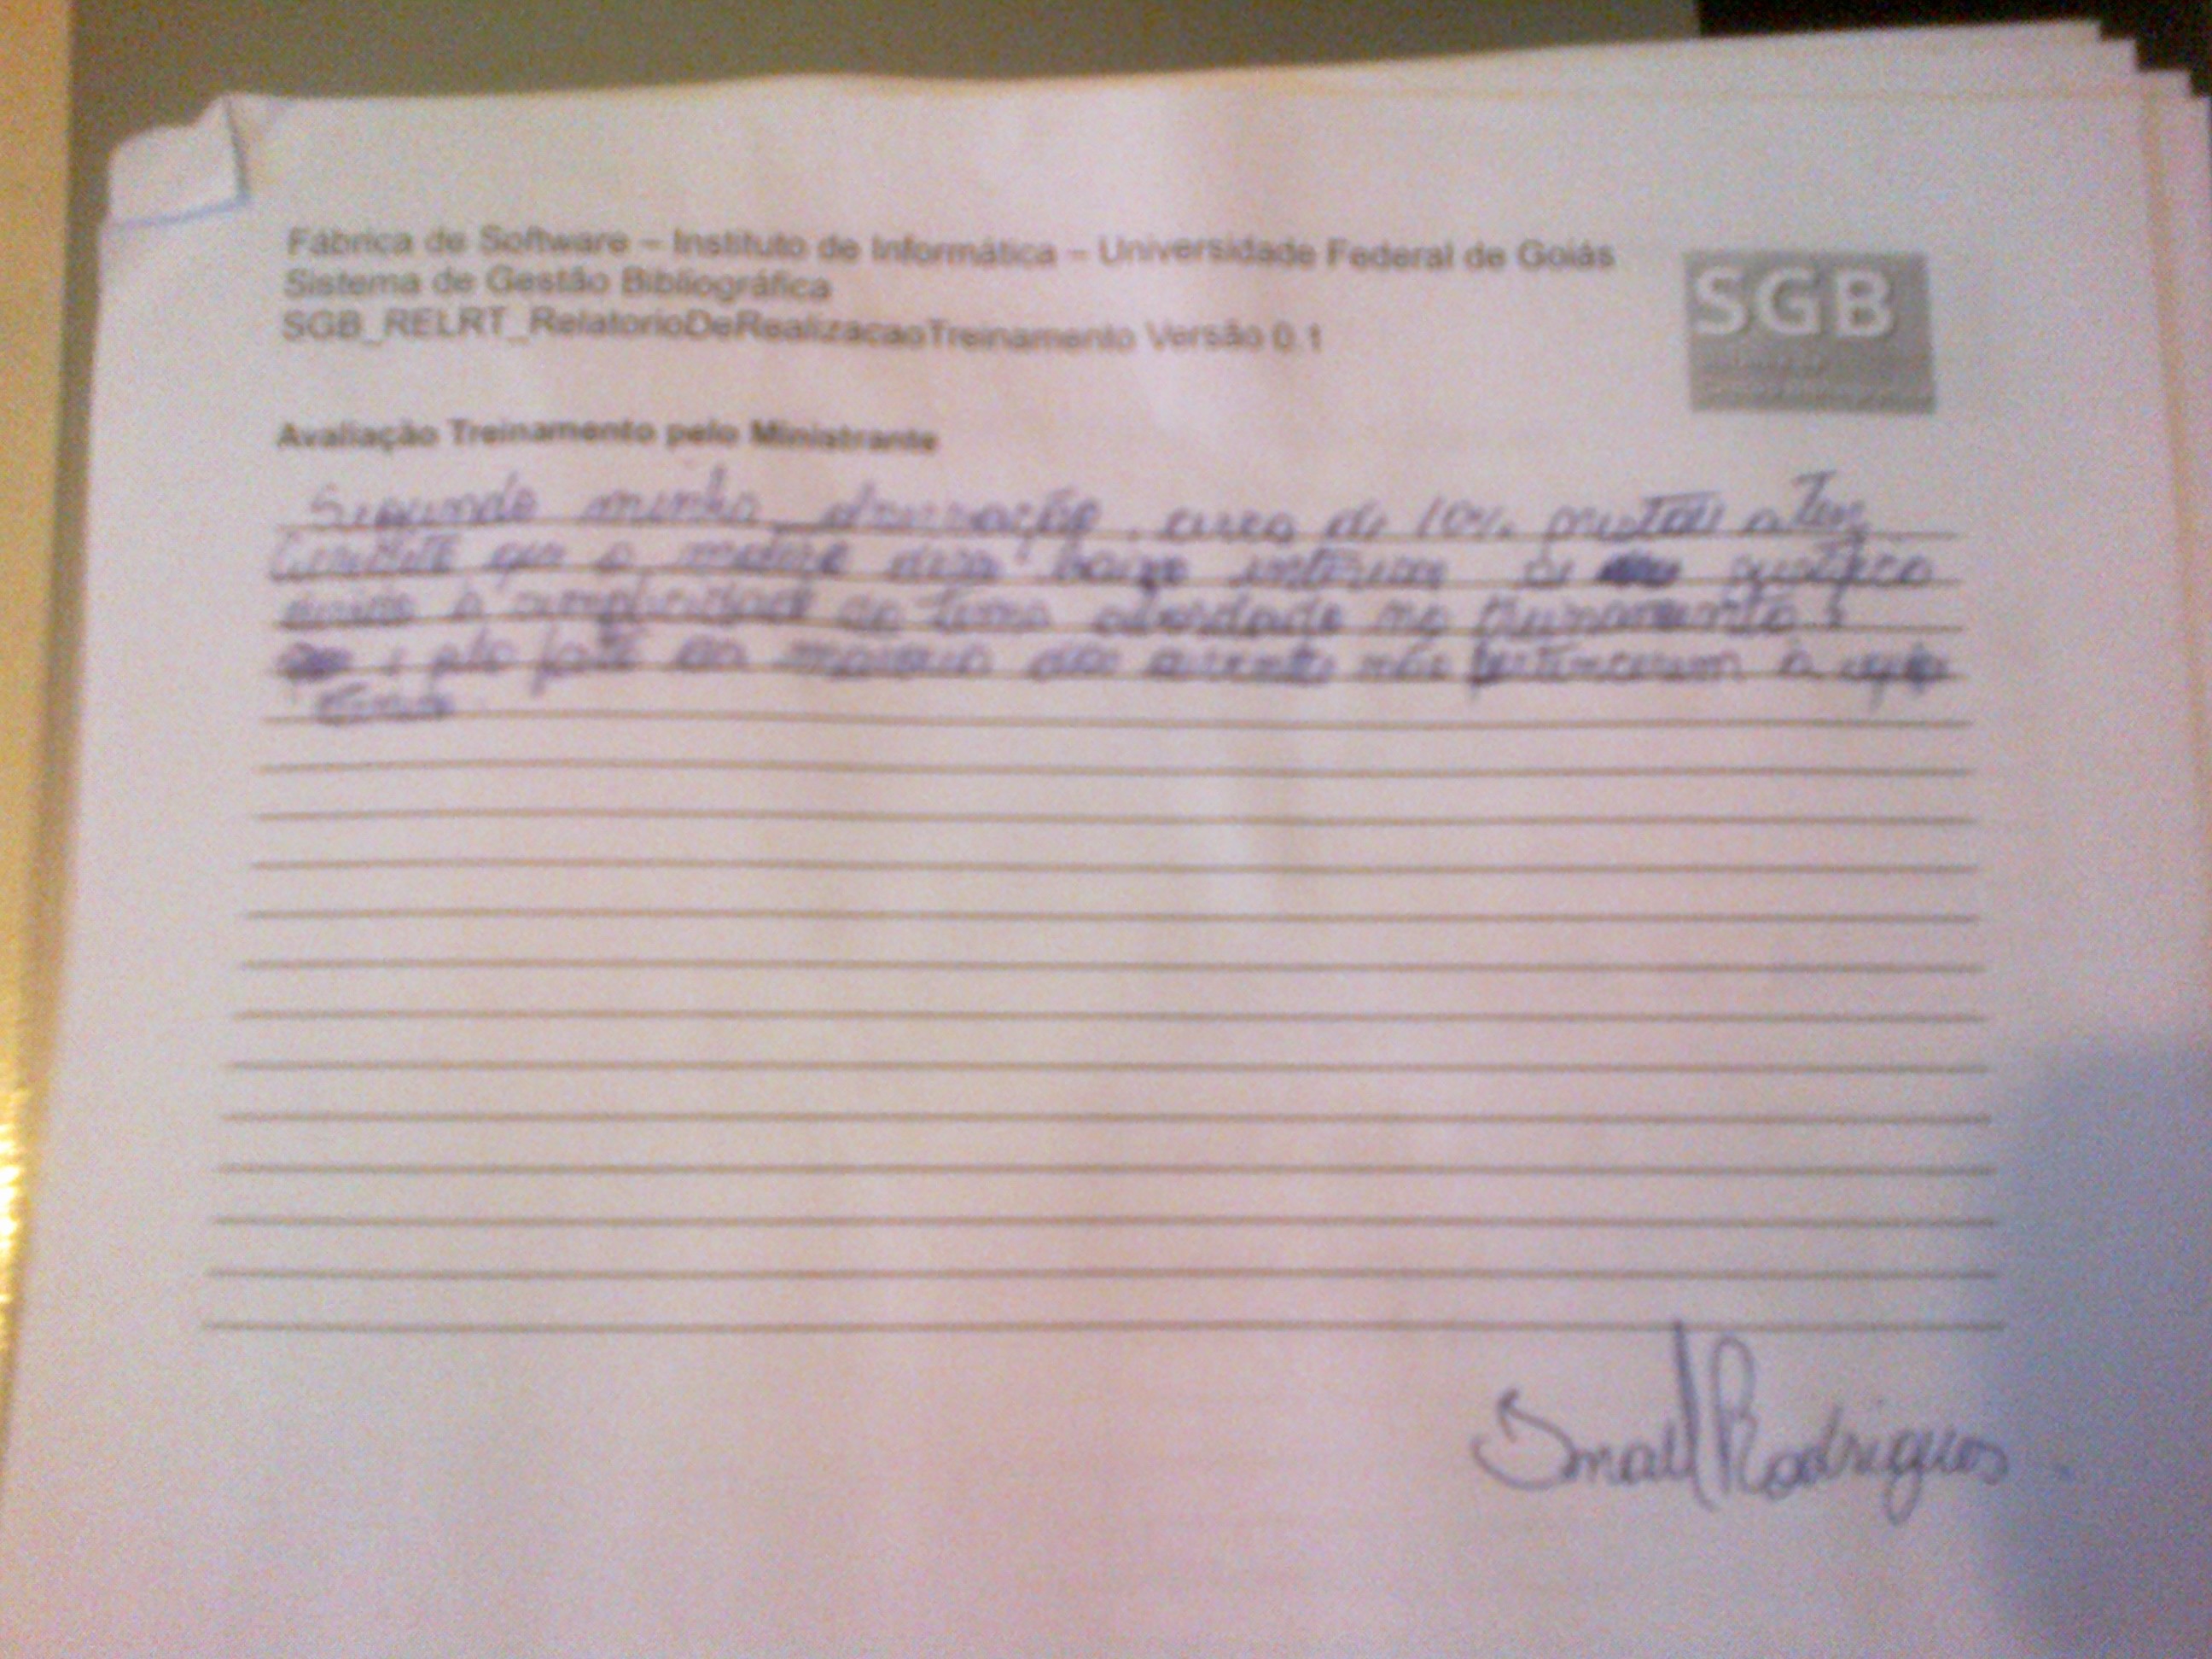 Fábrica de Software – Instituto de Informática – Universidade Federal de Goiás
Sistema de Gestão Bibliográfica
SGB_RELRT_RelatorioDeRealizacaoTreinamento Versão 0.1
SGB
Avaliação Treinamento pelo Ministrante
Segundo minha observação, cerca de 10% prestou aten
que o motivo desse baixo interesse se
devido à simplicidade do tema abordado no treinamento
e pelo fato da maioria dos não pertencerem à
Ismael Rodrigues